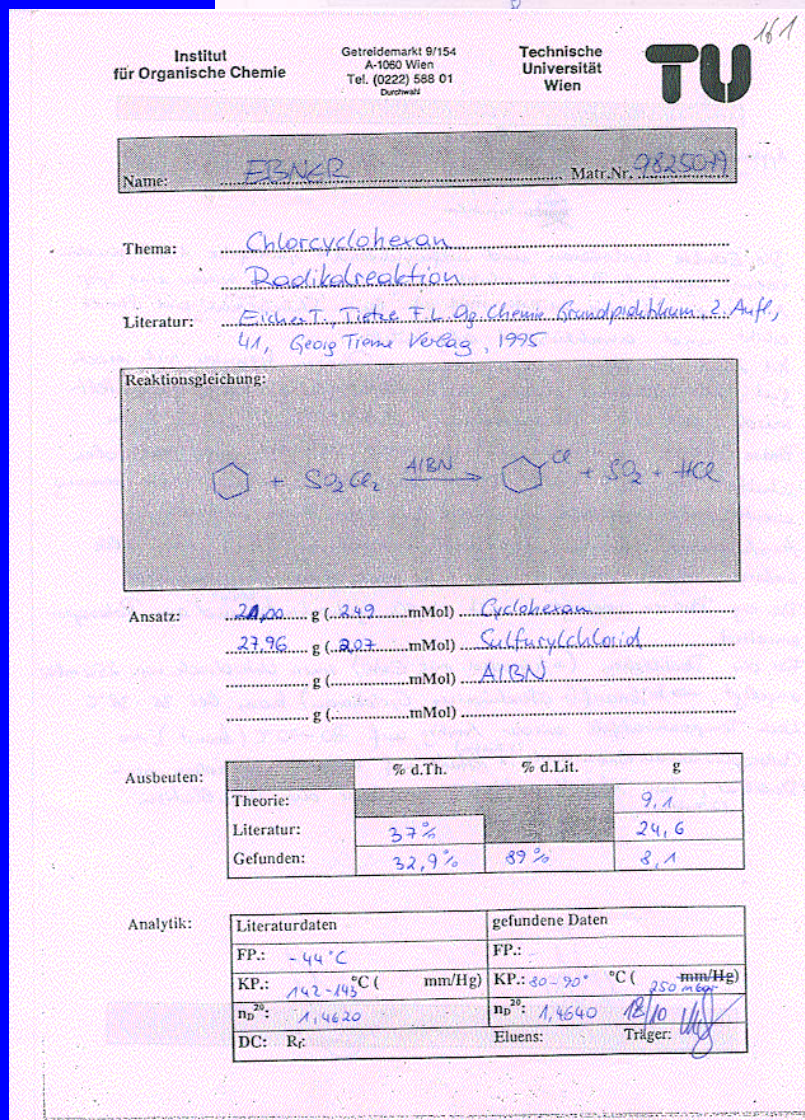 161
Institut
für Organische Chemie
Getreidemarkt 9/154
A-1060 Wien
Tel. (0222) 588 01
Durchwahl
Technische
Universität
Wien
TU
Name: EBNER Matr.Nr. 9825079
Thema: Chlorcyclohexan
Radikalreaktion
Literatur: Eicher T., Tietze F.L. Og. Chemie Grundpraktikum, 2. Aufl.,
41, Georg Tieme Verlag, 1995
Reaktionsgleichung:
+ SO2Cl2 AIBN Cl + SO2 + HCl
Ansatz: 21,00 g ( 249 mMol) Cyclohexan
27,96 g ( 207 mMol) Sulfurylchlorid
g ( mMol) AIBN
g ( mMol)
Ausbeuten: % d.Th. % d.Lit. g
Theorie: 9,1
Literatur: 37% 24,6
Gefunden: 32,9% 89% 8,1
Analytik: Literaturdaten gefundene Daten
FP.: -44°C FP.:
KP.: 142-143 °C ( mm/Hg) KP.: 80-90° °C ( 250 mbar mm/Hg)
nD20: 1,4620 nD20: 1,4640 18/10
DC: Rf: Eluens: Träger: